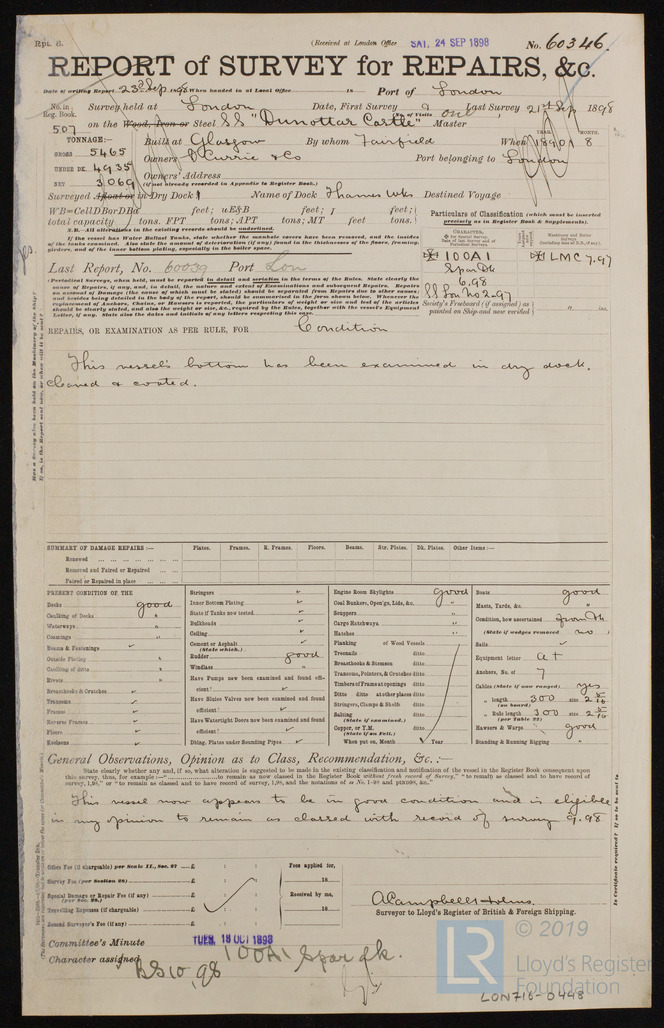 Rpt. 8.
(Received at London Office SAT. 24 SEP 1898
No. 60346.
REPORT of SURVEY for REPAIRS, &c.
Date of writing Report 23rd Sep 1898 When handed in at Local Office 18 Port of London
No. in Reg. Book. Survey held at London Date, First Survey Last Survey 21st Sep 1898
507 on the Wood, Iron or Steel SS "Dunottar Castle" No. of Visits one Master
TONNAGE:— Built at Glasgow By whom Fairfield When 1890 MONTH. 8
GROSS 5465 Owners D Currie & Co Port belonging to London
UNDER DK. 4935 Owners' Address
NET 3069 (if not already recorded in Appendix to Register Book.)
Surveyed Afloat or in Dry Dock Name of Dock Thames Wks Destined Voyage
WB=CellDBorDBa feet; uE&B feet; f feet;
total capacity tons. FPT tons; APT tons; MT feet tons.
N.B.—All alterations in the existing records should be underlined.
If the vessel has Water Ballast Tanks, state whether the manhole covers have been removed, and the insides
of the tanks examined. Also state the amount of deterioration (if any) found in the thicknesses of the floors, framing,
girders, and of the inner bottom plating, especially in the boiler space.
Particulars of Classification (which must be inserted
precisely as in Register Book & Supplements).
CHARACTER.
100A1
Spar Dk
6.98
SS Lon No 2-97
LMC 7.97
Society's Freeboard (if assigned) as
painted on Ship and now verified
Last Report, No. 60039 Port Lon
(Periodical Surveys, when held, must be reported in detail and seriatim in the terms of the Rules. State clearly the
cause of Repairs, if any, and, in detail, the nature and extent of Examinations and subsequent Repairs. Repairs
on account of Damage (the cause of which must be stated) should be separated from Repairs due to other causes;
and besides being detailed in the body of the report, should be summarized in the form shown below. Whenever the
replacement of Anchors, Chains, or Hawsers is reported, the particulars of weight or size and test of the articles
should be clearly stated, and also the weight or size, &c., required by the Rules, together with the vessel's Equipment
Letter, if any. State also the dates and initials of any letters respecting this case.
REPAIRS, OR EXAMINATION AS PER RULE, FOR Condition
This vessel's bottom has been examined in dry dock.
cleaned & coated.
SUMMARY OF DAMAGE REPAIRS :— Plates. Frames. R. Frames. Floors. Beams. Str. Plates. Dk. Plates. Other Items:—
Renewed
Removed and Faired or Repaired
Faired or Repaired in place
PRESENT CONDITION OF THE
Decks good
Caulking of Decks "
Waterways "
Coamings "
Beams & Fastenings
Outside Plating "
Caulking of ditto "
Rivets "
Breasthooks & Crutches
Transoms
Frames
Reverse Frames
Floors
Keelsons
Stringers
Inner Bottom Plating
State if Tanks now tested
Bulkheads
Ceiling
Cement or Asphalt
(State which.)
Rudder good
Windlass "
Have Pumps now been examined and found effi-
cient?
Have Sluice Valves now been examined and found
efficient?
Have Watertight Doors now been examined and found
efficient?
Dblng. Plates under Sounding Pipes
Engine Room Skylights good
Coal Bunkers, Open'gs, Lids, &c. "
Scuppers "
Cargo Hatchways "
Hatches "
Planking of Wood Vessels
Treenails ditto
Breasthooks & Stemson ditto
Transoms, Pointers, & Crutches ditto
Timbers of Frame at openings ditto
Ditto ditto at other places ditto
Stringers, Clamps & Shelfs ditto
Salting ditto
(State if examined.)
Copper, or Y.M. ditto
(State if on Felt.)
When put on, Month Year
Boats good
Masts, Yards, &c. "
Condition, how ascertained from Dk
(State if wedges removed no )
Sails
Equipment letter at
Anchors, No. of 7
Cables (State if now ranged) yes
" length 300 size 2 5/16
(on board)
" Rule length 300 size 2 5/16
(per Table 22)
Hawsers & Warps good
Standing & Running Rigging "
General Observations, Opinion as to Class, Recommendation, &c. :—
State clearly whether any and, if so, what alteration is suggested to be made in the existing classification and notification of the vessel in the Register Book consequent upon
This vessel now appears to be in good condition and is eligible
in my opinion to remain as classed with record of survey 9.98
Office Fee (if chargeable) per Scale II., Sec. 27 £ : :
Survey Fee (per Section 28) £ : :
Special Damage or Repair Fee (if any) £ : :
(per Sec. 28.)
Travelling Expenses (if chargeable) £ : :
Second Surveyor's Fee (if any) £ : :
Fees applied for,
18
Received by me,
18
A Campbell Holms.
Surveyor to Lloyd's Register of British & Foreign Shipping.
Committee's Minute TUES. 18 OCT 1898
Character assigned 100A1 Spar dk.
BS 10,98
© 2019
LR
Lloyd's Register
Foundation
LON716-0448